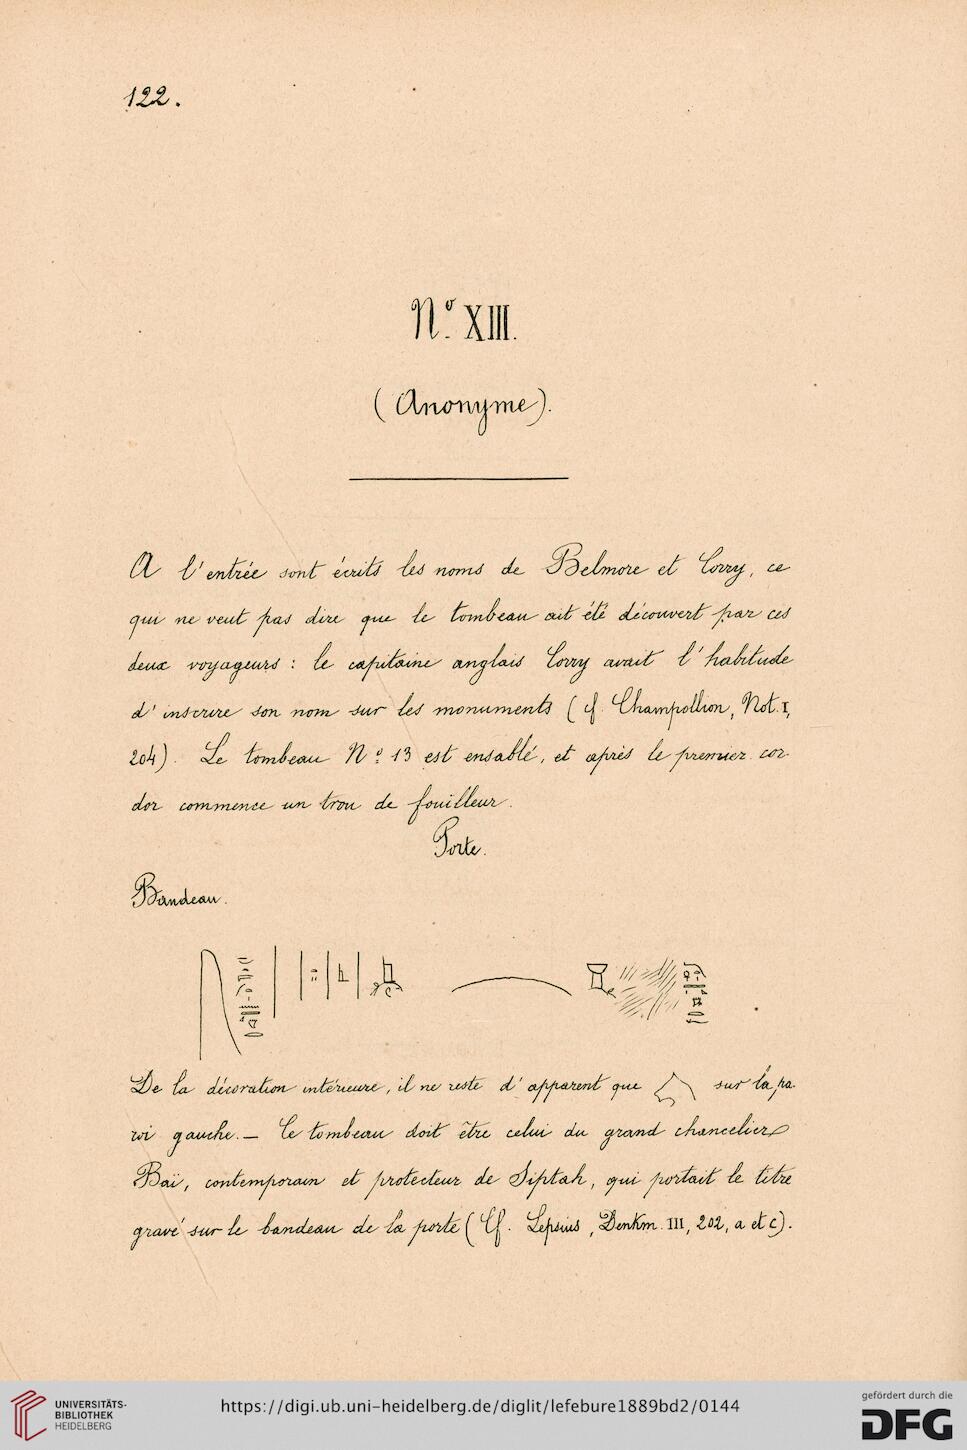 122.
N.º XIII.
(Anonyme).
A l'entrée sont écrits les noms de Belmore et Corry, ce
qui ne veut pas dire que le tombeau ait été découvert par ces
deux voyageurs : le capitaine anglais Corry avait l'habitude
d'inscrire son nom sur les monuments (cf. Champollion, Not. I,
204). Le tombeau N.º 13 est ensablé, et après le premier cor-
dor commence un trou de fouilleur.
Porte.
Bandeau.
De la décoration intérieure, il ne reste d'apparent que sur la pa-
roi gauche. — Le tombeau doit être celui du grand chancelier
Baï, contemporain et protecteur de Siptah, qui portait le titre
gravé sur le bandeau de la porte (Cf. Lepsius, Denkm. III, 202, a et c).
UNIVERSITÄTS-
BIBLIOTHEK
HEIDELBERG
https://digi.ub.uni-heidelberg.de/diglit/lefebure1889bd2/0144
gefördert durch die
DFG